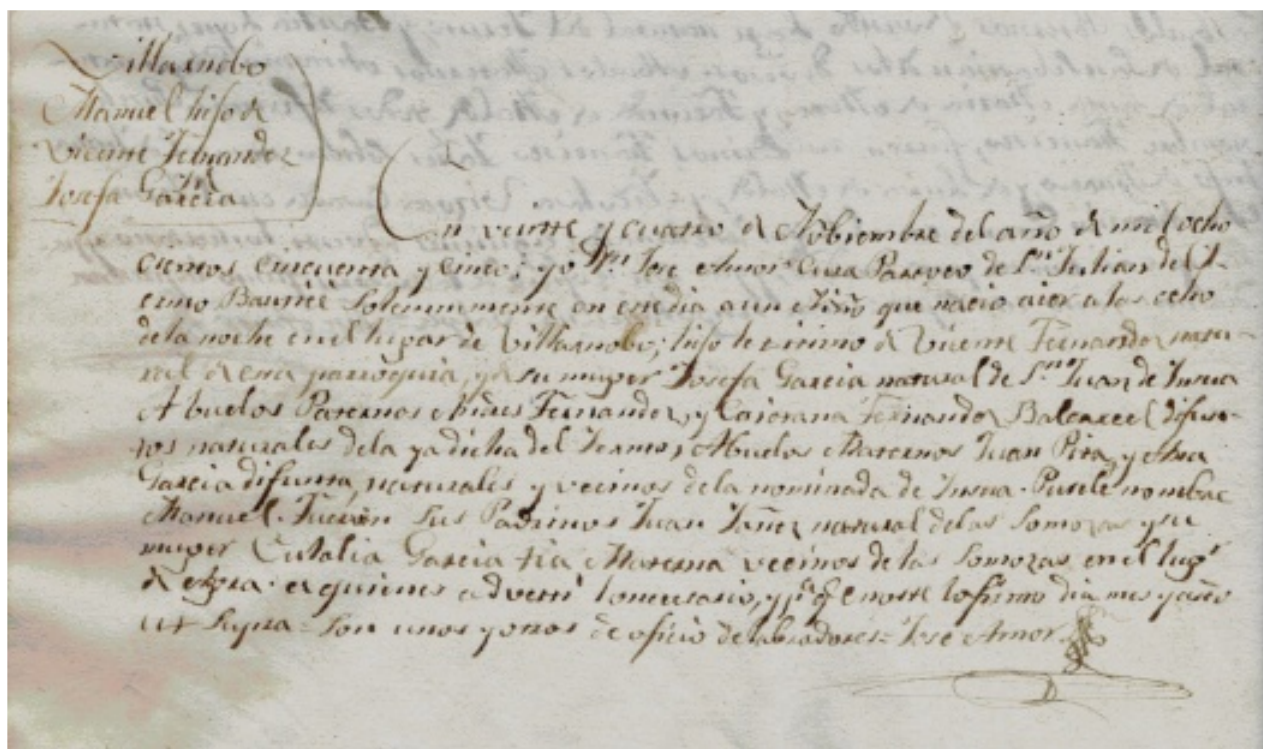 Villarnobo
Manuel hijo de
Vicente Fernandez
Josefa García
En veinte y cuatro de Nobiembre del año de mil ocho
cientos cincuenta y cinco; yo Dn. José Amor Cura Parroco de Sn. Julian del
ermo Bauticé Solemnemente en este dia a un Niño que nacio aier a las ocho
de la noche en el lugar de Villarnobo; hijo lexitimo de Vicente Fernandez natu-
ral de esta parroquia, y de su muger Josefa Garcia natural de Sn. Juan de Insua
Abuelos Paternos Andres Fernandez, y Caietana Fernandez Balcarcel difun-
tos naturales de la ya dicha del Iermo; Abuelos Maternos Juan Pita, y Ana
Garcia difunta, naturales y vecinos de la nominada de Insua. Pusele nombre
Manuel. Fueron sus Padrinos Juan Yañez natural de las Somozas y su
muger Eulalia Garcia tia Materna vecinos de las Somozas en el lugr.
de a quienes adverti lo necesario, y pa. qe. conste lo firmo dia mes y año
ut supra = Son unos y otros de oficio de labradores = José Amor